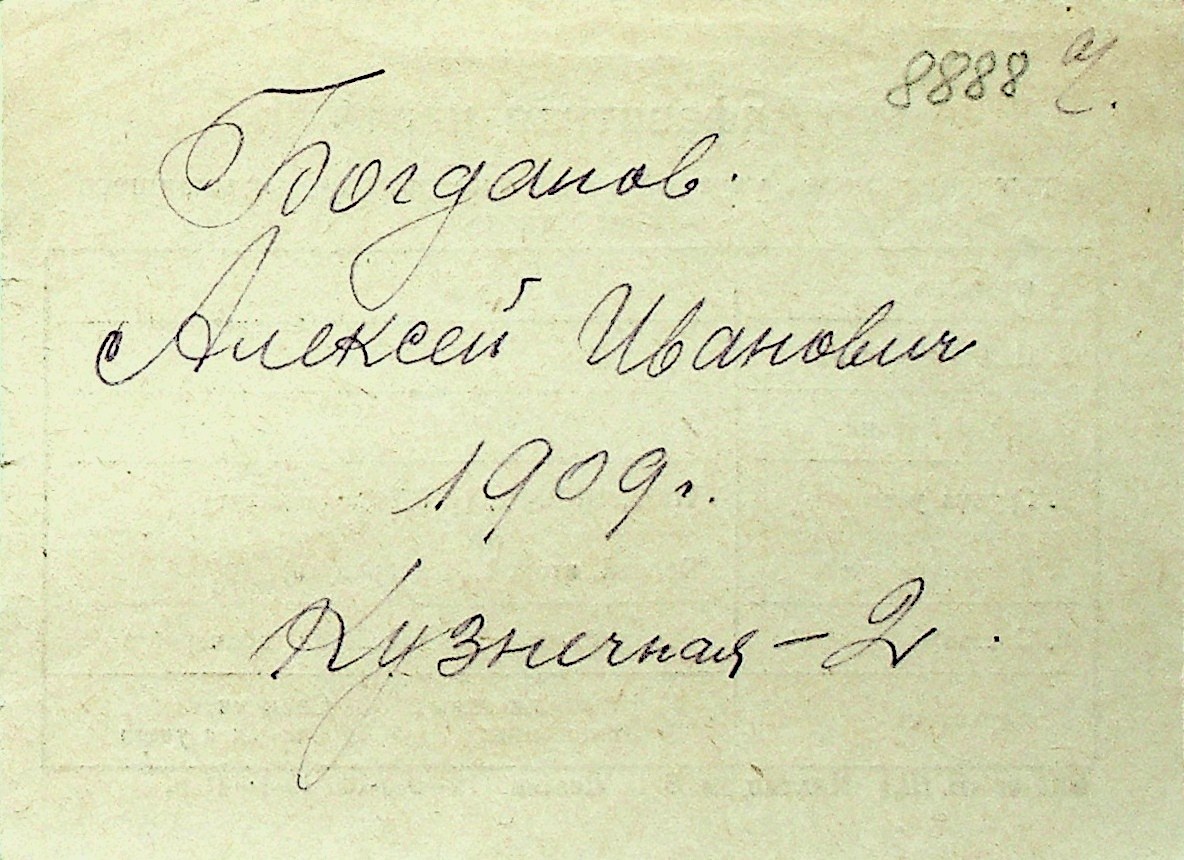 8888
Богданов.
Алексей Иванович
1909 г.
Кузнечная – 2.